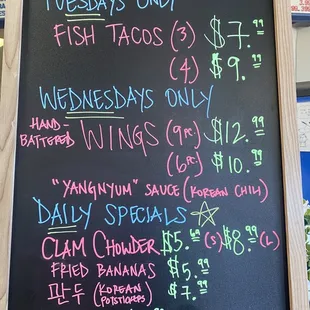 TUESDAYS ONLY
FISH TACOS (3) $7.99
(4) $9.99
WEDNESDAYS ONLY
HAND-BATTERED WINGS (9pc) $12.99
(6pc) $10.99
"YANGNYUM" SAUCE (KOREAN CHILI)
DAILY SPECIALS
CLAM CHOWDER $5.69 (S) $8.99 (L)
FRIED BANANAS $5.99
만두 (KOREAN POTSTICKERS) $7.99